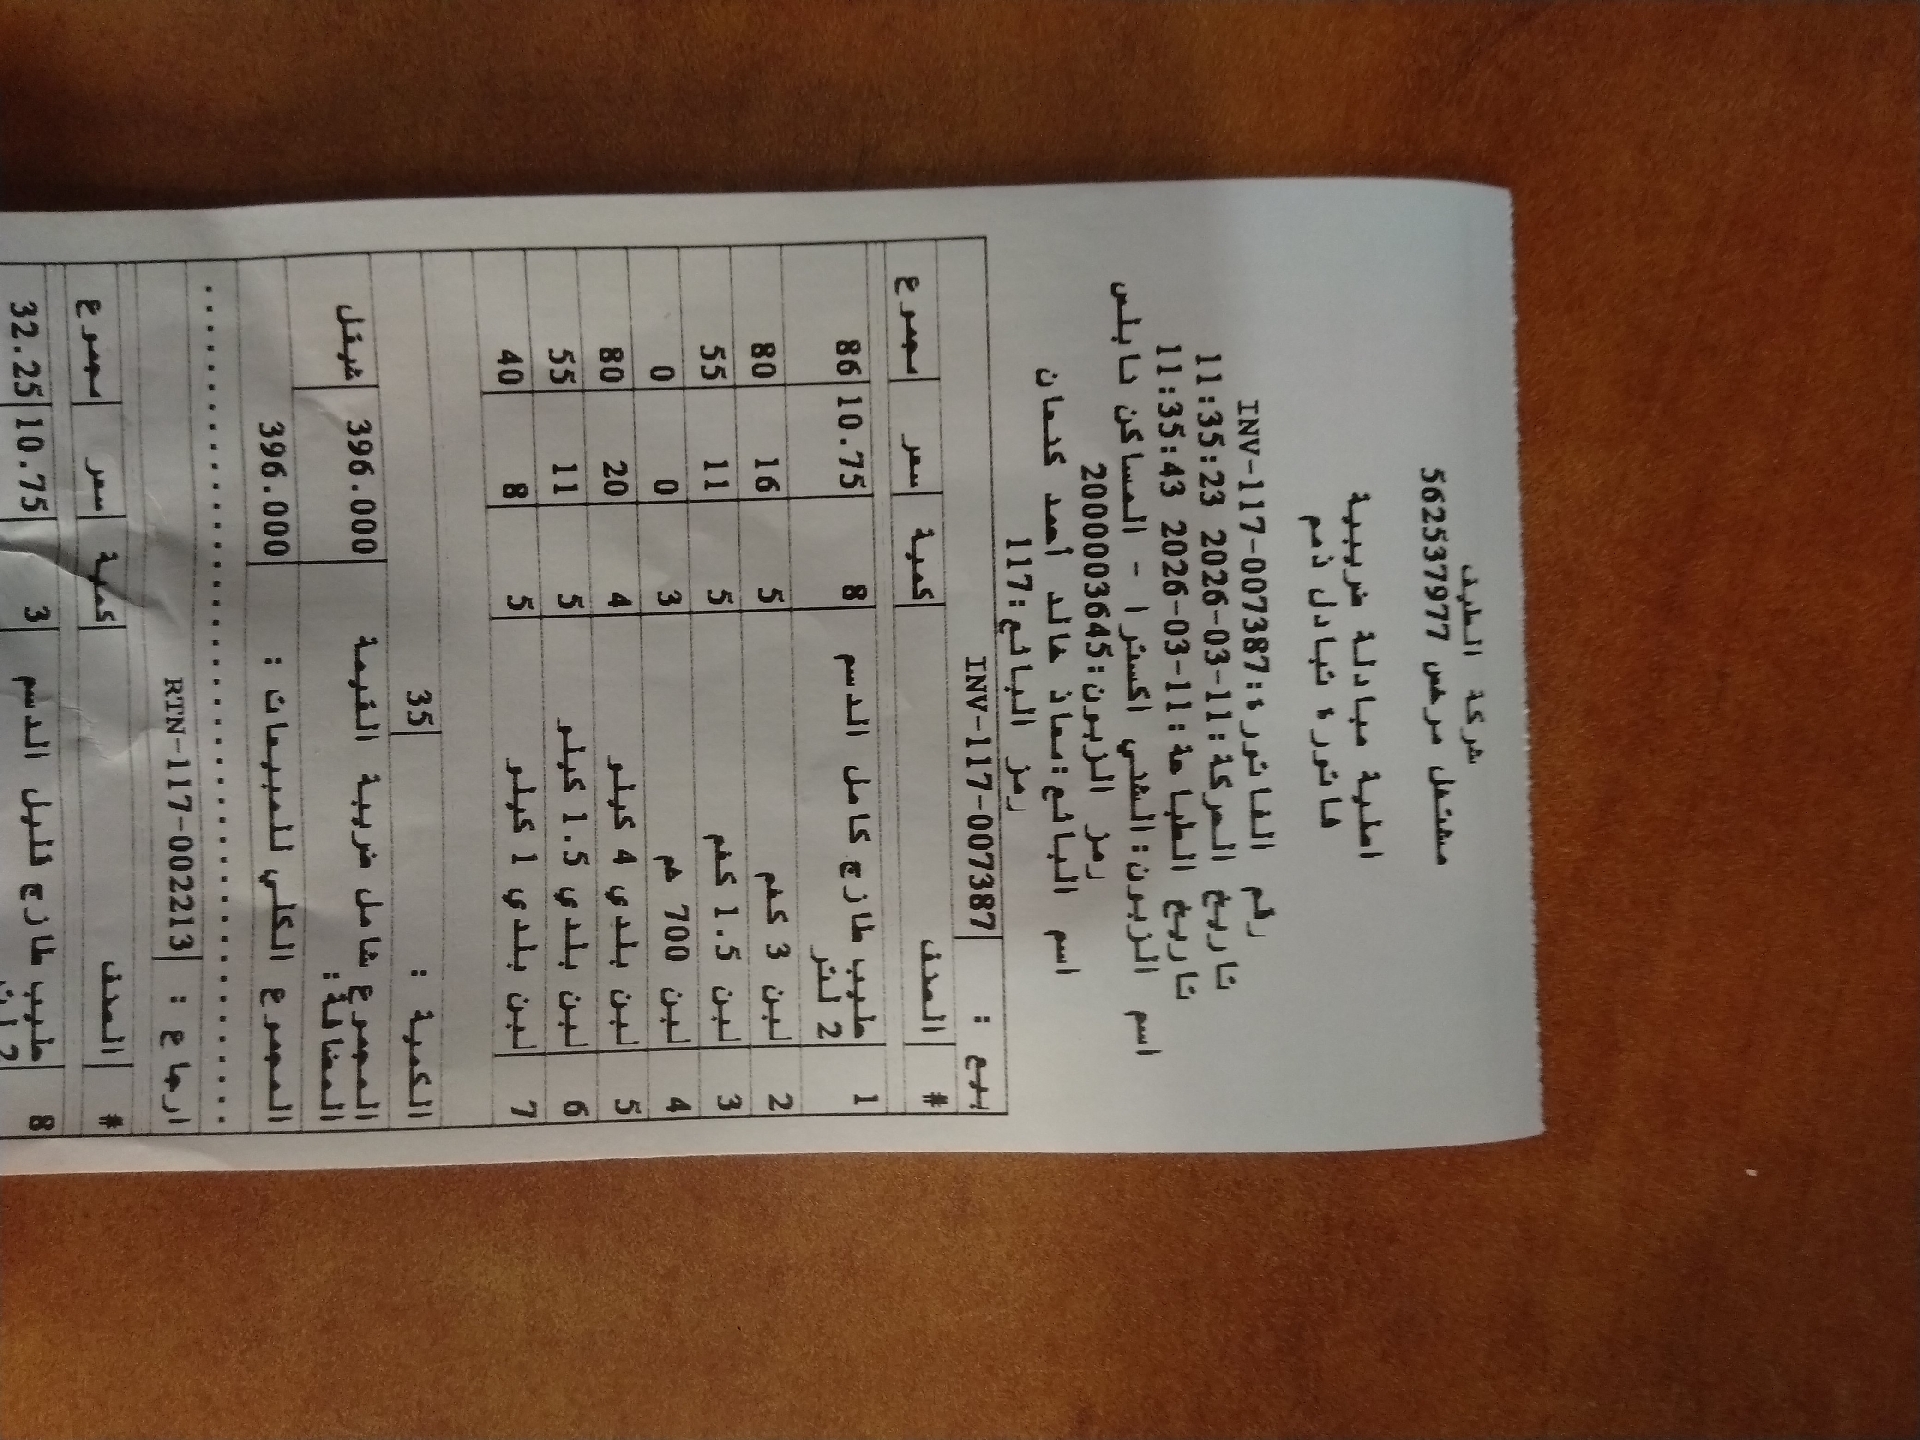 شركة الطيف
مشتغل مرخص 562537977
اصلية مبادلة ضريبية
فاتورة تبادل ذمم
رقم الفاتورة:INV-117-007387
تاريخ الحركة:11-03-2026 11:35:23
تاريخ الطباعة:11-03-2026 11:35:43
اسم الزبون:الشني اكسترا - المساكن نابلس
رمز الزبون:2000003645
اسم البائع:معاذ خالد أحمد كنعان
رمز البائع:117
بيع : INV-117-007387
# الصنف كمية سعر مجموع
1 حليب طازج كامل الدسم 8 10.75 86
2 لتر
2 لبن 3 كغم 5 16 80
3 لبن 1.5 كغم 5 11 55
4 لبن 700 غم 3 0 0
5 لبن بلدي 4 كيلو 4 20 80
6 لبن بلدي 1.5 كيلو 5 11 55
7 لبن بلدي 1 كيلو 5 8 40
الكمية : 35
المجموع شامل ضريبة القيمة 396.000 شيقل
المضافة:
المجموع الكلي للمبيعات : 396.000
ارجاع : RTN-117-002213
# الصنف كمية سعر مجموع
8 حليب طازج قليل الدسم 3 10.75 32.25
2 لتر